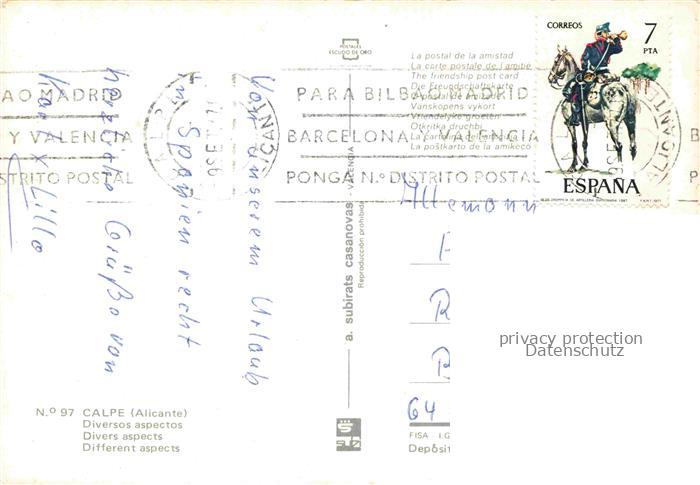 Von unserem Urlaub
in Spanien recht
herzliche Grüße von
Lillo
POSTALES
ESCUDO DE ORO
La postal de la amistad
La carte postale de l'amitie
The friendship post card
Die Freundschaftskarte
Vänskapens vykort
Vriendelijke groeten
Otkritka druchbi
La postkarto de la amikeco
CORREOS
7
PTA
ESPAÑA
AO MADRID
Y VALENCIA
STRITO POSTAL
PARA BILBAO MADRID
BARCELONA Y VALENCIA
PONGA N.º DISTRITO POSTAL
ALICANTE
a. subirats casanovas - VALENCIA
Reproducción prohibida
Allemann
64
privacy protection
Datenschutz
N.º 97 CALPE (Alicante)
Diversos aspectos
Divers aspects
Different aspects
FISA - I.G
Depósit